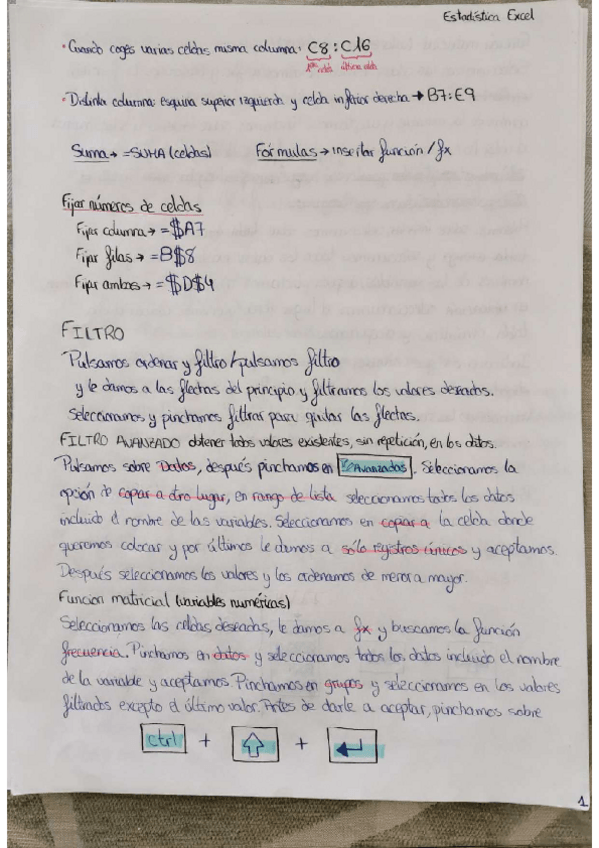 Estadística Excel
· Cuando coges varias celdas misma columna: C8:C16
1ª celda última celda
· Distinta columna: esquina superior izquierda y celda inferior derecha → B7:E9
Suma → =SUMA(celdas) Fórmulas → insertar función / fx
Fijar números de celdas
Fijar columna → =$A7
Fijar filas → =B$8
Fijar ambos → =$D$4
FILTRO
Pulsamos ordenar y filtro / pulsamos filtro
y le damos a las flechas del principio y filtramos los valores deseados.
Seleccionamos y pinchamos filtrar para quitar las flechas.
FILTRO AVANZADO obtener todos valores existentes, sin repetición, en los datos.
Pulsamos sobre Datos, después pinchamos en Avanzadas. Seleccionamos la
opción de copiar a otro lugar, en rango de lista seleccionamos todos los datos
incluido el nombre de las variables. Seleccionamos en copiar a la celda donde
queremos colocar y por últimos le damos a sólo registros únicos y aceptamos.
Después seleccionamos los valores y los ordenamos de menor a mayor.
Funcion matricial (variables numéricas)
Seleccionamos las celdas deseadas, le damos a fx y buscamos la función
frecuencia. Pinchamos en datos y seleccionamos todos los datos incluido el nombre
de la variable y aceptamos. Pinchamos en grupos y seleccionamos en los valores
filtrados excepto el último valor. Antes de darle a aceptar, pinchamos sobre
ctrl + ⇧ + ↵
1